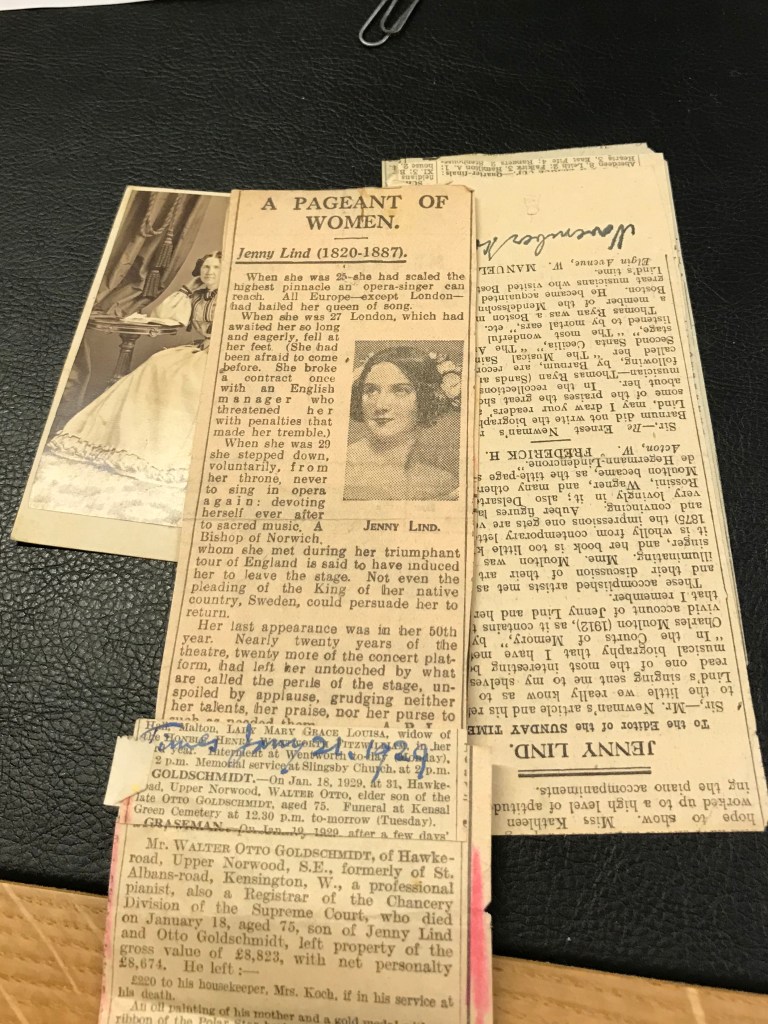 A PAGEANT OF
WOMEN.
Jenny Lind (1820-1887).
When she was 25 she had scaled the
highest pinnacle an opera-singer can
reach. All Europe—except London—
had hailed her queen of song.
When she was 27 London, which had
awaited her so long
and eagerly, fell at
her feet. (She had
been afraid to come
before. She broke
a contract once
with an English
manager who
threatened her
with penalties that
made her tremble.)
When she was 29
she stepped down,
voluntarily, from
her throne, never
to sing in opera
again: devoting
herself ever after
to sacred music. A
Bishop of Norwich,
JENNY LIND.
whom she met during her triumphant
tour of England is said to have induced
her to leave the stage. Not even the
pleading of the King of her native
country, Sweden, could persuade her to
return.
Her last appearance was in her 50th
year. Nearly twenty years of the
theatre, twenty more of the concert plat-
form, had left her untouched by what
are called the perils of the stage, un-
spoiled by applause, grudging neither
her talents, her praise, nor her purse to
such as needed them.
Hall, Malton, LADY MARY GRACE LOUISA, widow of
2 p.m. Memorial service at Slingsby Church, at 2 p.m.
Times Jany 21. 1929
GOLDSCHMIDT.—On Jan. 18, 1929, at 31, Hawke-
road, Upper Norwood, WALTER OTTO, elder son of the
late OTTO GOLDSCHMIDT, aged 75. Funeral at Kensal
Green Cemetery at 12.30 p.m. to-morrow (Tuesday).
GRASEMAN.—On Jan. 19, 1929, after a few days'
Mr. WALTER OTTO GOLDSCHMIDT, of Hawke-
road, Upper Norwood, S.E., formerly of St.
Albans-road, Kensington, W., a professional
pianist, also a Registrar of the Chancery
Division of the Supreme Court, who died
on January 18, aged 75, son of Jenny Lind
and Otto Goldschmidt, left property of the
gross value of £8,823, with net personality
£8,674. He left:—
£220 to his housekeeper, Mrs. Koch, if in his service at
his death.
An oil painting of his mother and a gold medal
ribbon of the Polar Star
hope to show. Miss Kathleen
worked up to a high level of aptitud
ing the piano accompaniments.
JENNY LIND.
TO the Editor of the SUNDAY TIME
Sir,—Mr. Newman's article and his re
to the little we really know as to
Lind's singing sent me to my shelves
read one of the most interesting b
musical biography that I have me
"In the Courts of Memory," by
Charles Moulton (1912), as it contains t
vivid account of Jenny Lind and her
that I remember.
These accomplished artists met as
and their discussion of their art
illuminating. Mme. Moulton was
singer, and her book is too little k
it is wholly from contemporary lett
1875) the impressions one gets are v
and convincing. Auber figures la
very lovingly in it; also Delsarte
Rossini, Wagner, and many other
Moulton became, as the title-page s
de Hegermann-Lindencrone.
Acton, W. FREDERICK H.
Sir,—Re Ernest Newman's
Barnum did not write the biograph
Lind, may I draw your readers'
some of the praises the great sh
about her. In the recollections
musician—Thomas Ryan (Sands a
following, by Barnum, are recor
called her "The Musical Sain
Second Santa Cecilia," "The A
stage," "The most wonderful
listened to by mortal ears," etc.
Thomas Ryan was a Boston m
a member of the Mendelssohn
Boston. He became acquainted
great musicians who visited Bost
Lind's time.
Elgin Avenue, W. MANUEL
November